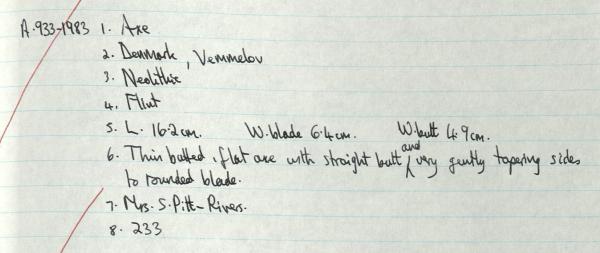 A.933-1983 1. Axe
2. Denmark, Vemmelov
3. Neolithic
4. Flint
5. L. 16.2cm. W.blade 6.4cm. W.butt 4.9cm.
6. Thin butted, flat axe with straight butt and very gently tapering sides
to rounded blade.
7. Mrs. S. Pitt-Rivers.
8. 233